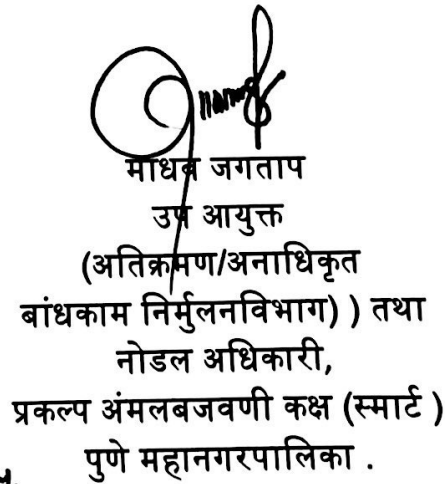 माधव जगताप
उप आयुक्त
(अतिक्रमण/अनाधिकृत
बांधकाम निर्मुलनविभाग) ) तथा
नोडल अधिकारी,
प्रकल्प अंमलबजवणी कक्ष (स्मार्ट )
पुणे महानगरपालिका .